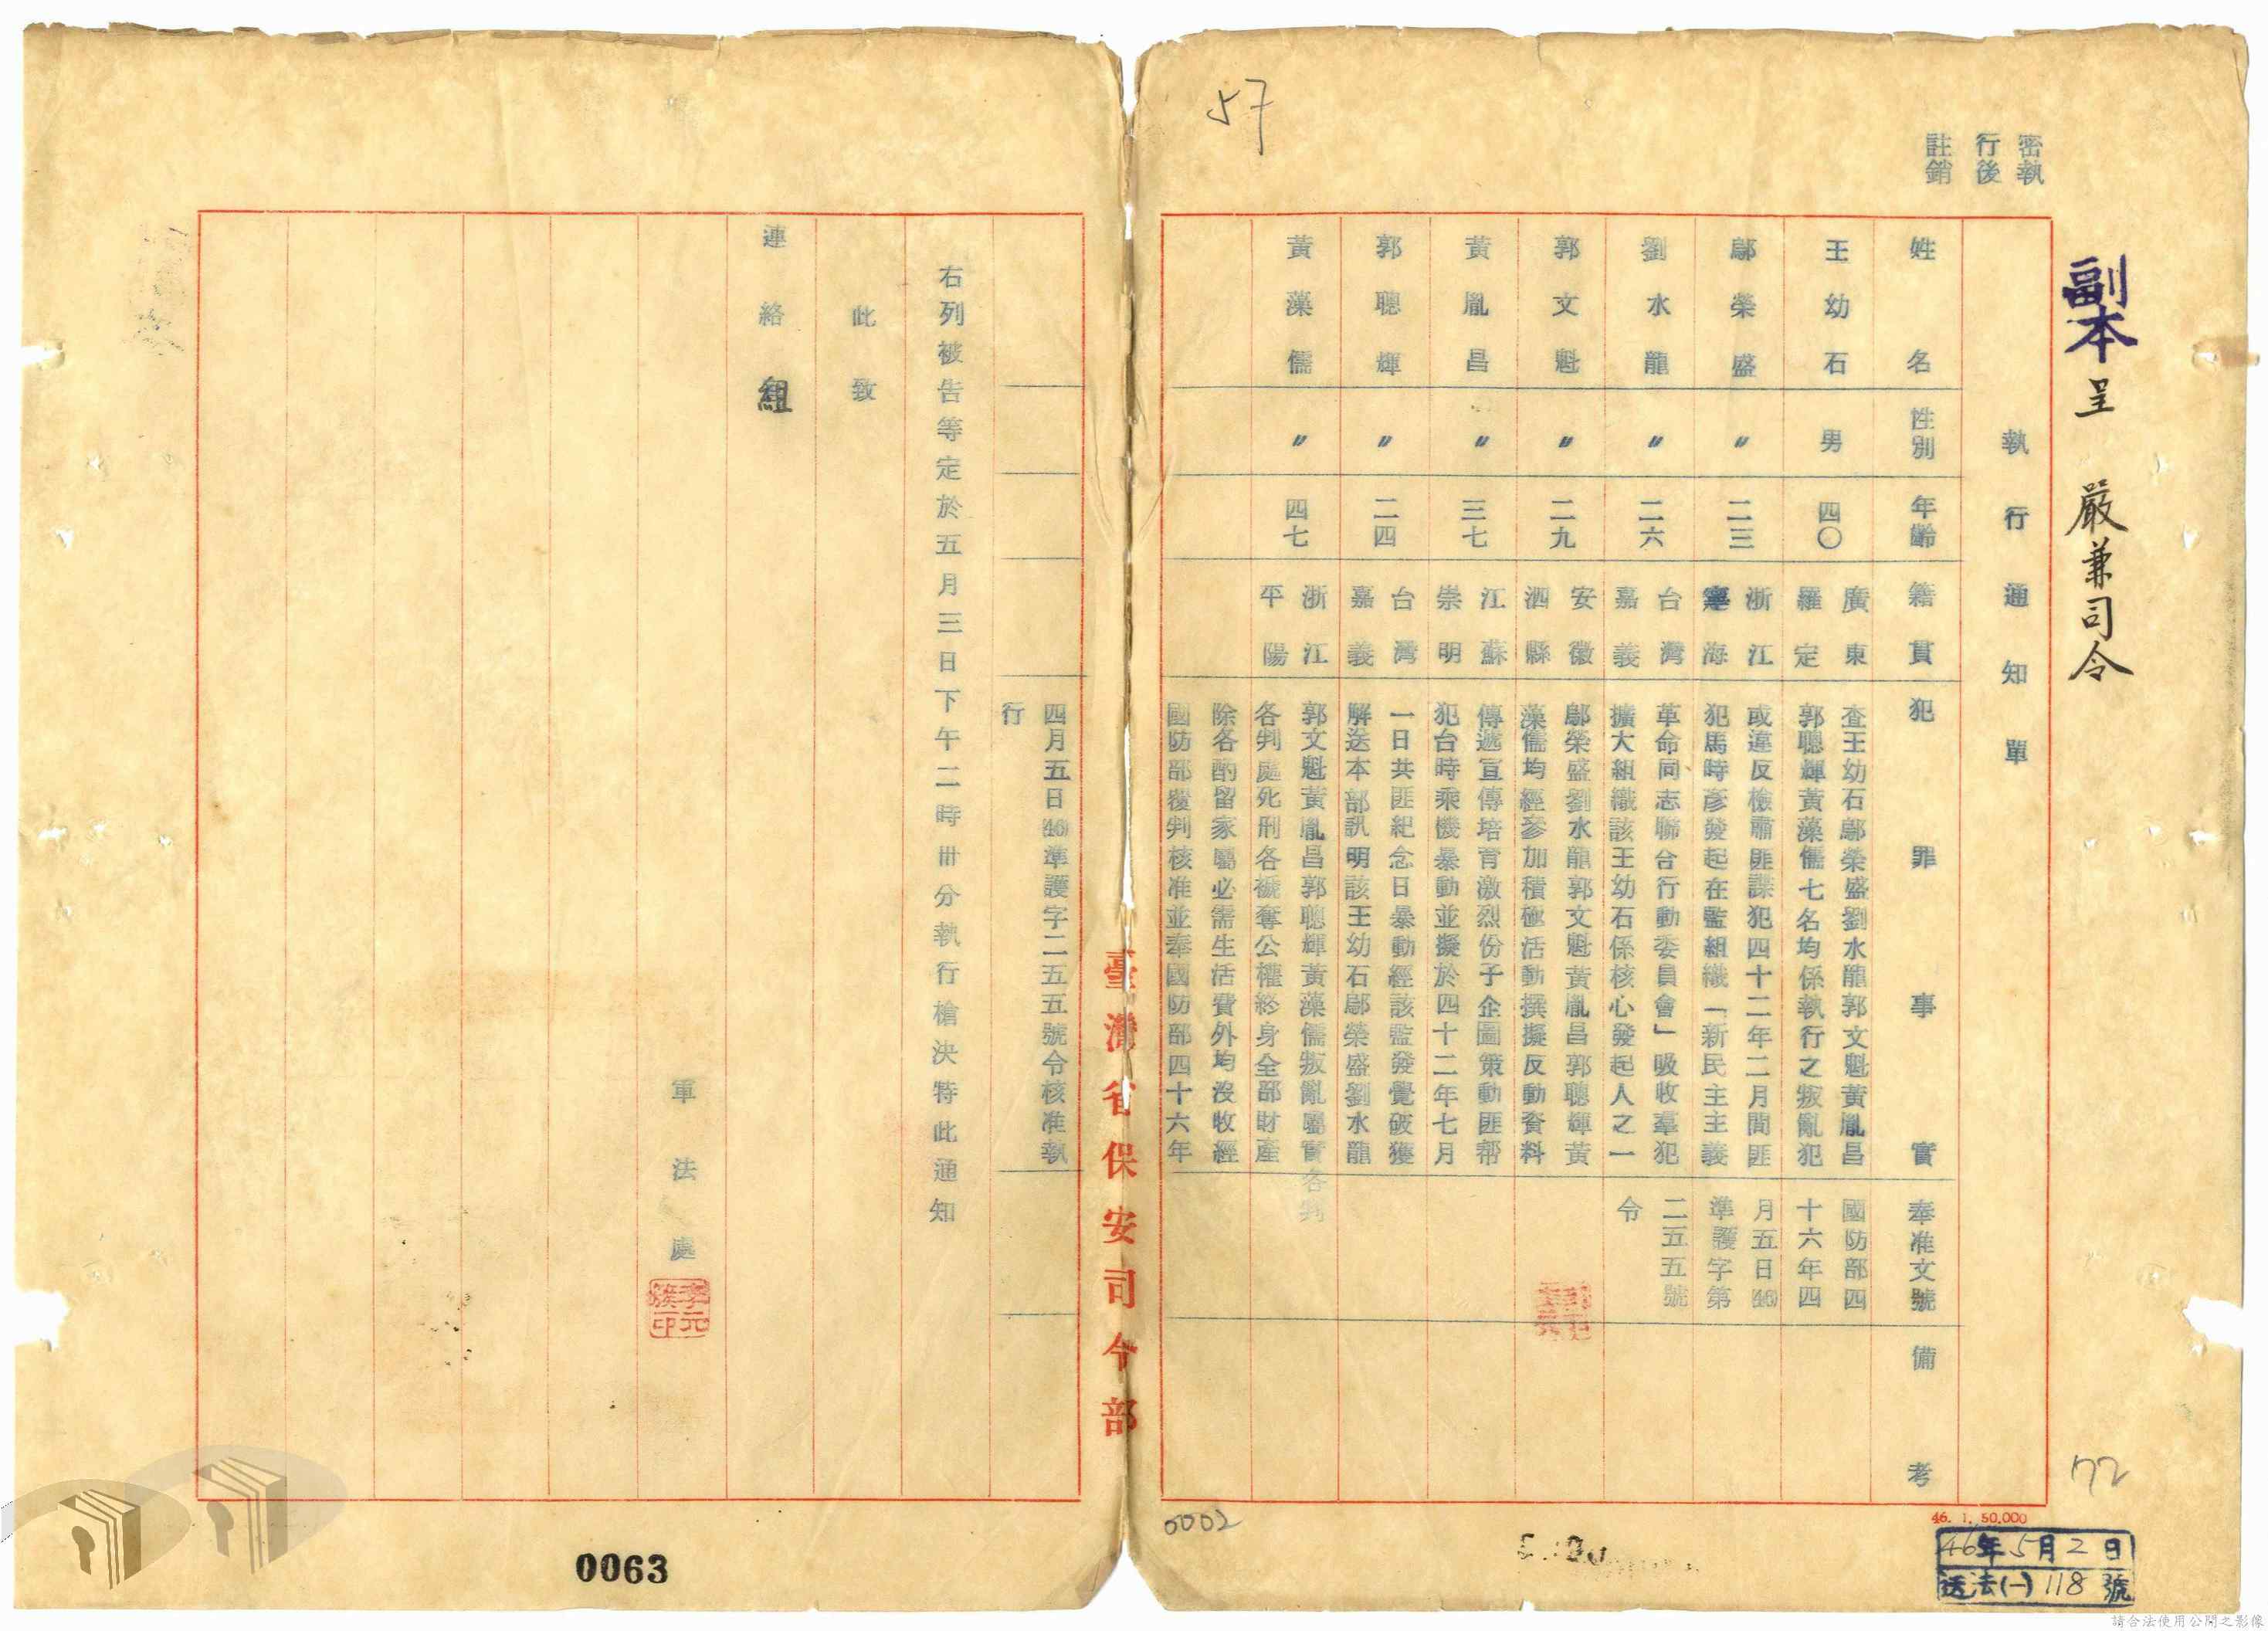 密執
行後
註銷
副本 呈 嚴兼司令
執行通知單
姓名 性別 年齡 籍貫 犯罪事實 奉准文號 備考
王幼石 男 四〇 廣東羅定
鄔榮盛 〃 二三 浙江寧海
劉水龍 〃 二六 台灣嘉義
郭文魁 〃 二九 安徽泗縣
黃胤昌 〃 三七 江蘇崇明
郭聰輝 〃 二四 台灣嘉義
黃藻儒 〃 四七 浙江平陽
查王幼石鄔榮盛劉水龍郭文魁黃胤昌
郭聰輝黃藻儒七名均係執行之叛亂犯
或違反檢肅匪諜犯四十二年二月間匪
犯馬時彥發起在監組織「新民主主義
革命同志聯合行動委員會」吸收羣犯
擴大組織該王幼石係核心發起人之一
鄔榮盛劉水龍郭文魁黃胤昌郭聰輝黃
藻儒均經參加積極活動撰擬反動資料
傳遞宣傳培育激烈份子企圖策動匪幫
犯台時乘機暴動並擬於四十二年七月
一日共匪紀念日暴動經該監發覺破獲
解送本部訊明該王幼石鄔榮盛劉水龍
郭文魁黃胤昌郭聰輝黃藻儒叛亂屬實各判
各判處死刑各褫奪公權終身全部財產
除各酌留家屬必需生活費外均沒收經
國防部覆判核准並奉國防部四十六年
四月五日(46)準護字二五五號令核准執
行
國防部四
十六年四
月五日(46)
準護字第
二五五號
令
臺灣省保安司令部
右列被告等定於五月三日下午二時卅分執行槍決特此通知
此致
連絡組
軍法處
李元簇印
57
72
0002
46. 1. 50.000
46年5月2日
送法(一)118號
0063
請合法使用公開之影像